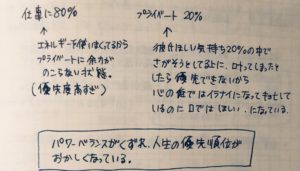 仕事に80%
プライベート 20%
↑
エネルギーを使いまくてるから
プライベートに余力が
のこらない状態。
(優先度高すぎ)
↑
彼氏ほしい気持ち20%の中で
さがそうとしてる上に、叶ってしまったと
したら優先できないから
心の底ではイラナイになってキョヒして
いるのに口ではほしい、になっている。
パワーバランスがくずれ、人生の優先順位が
おかしくなっている。